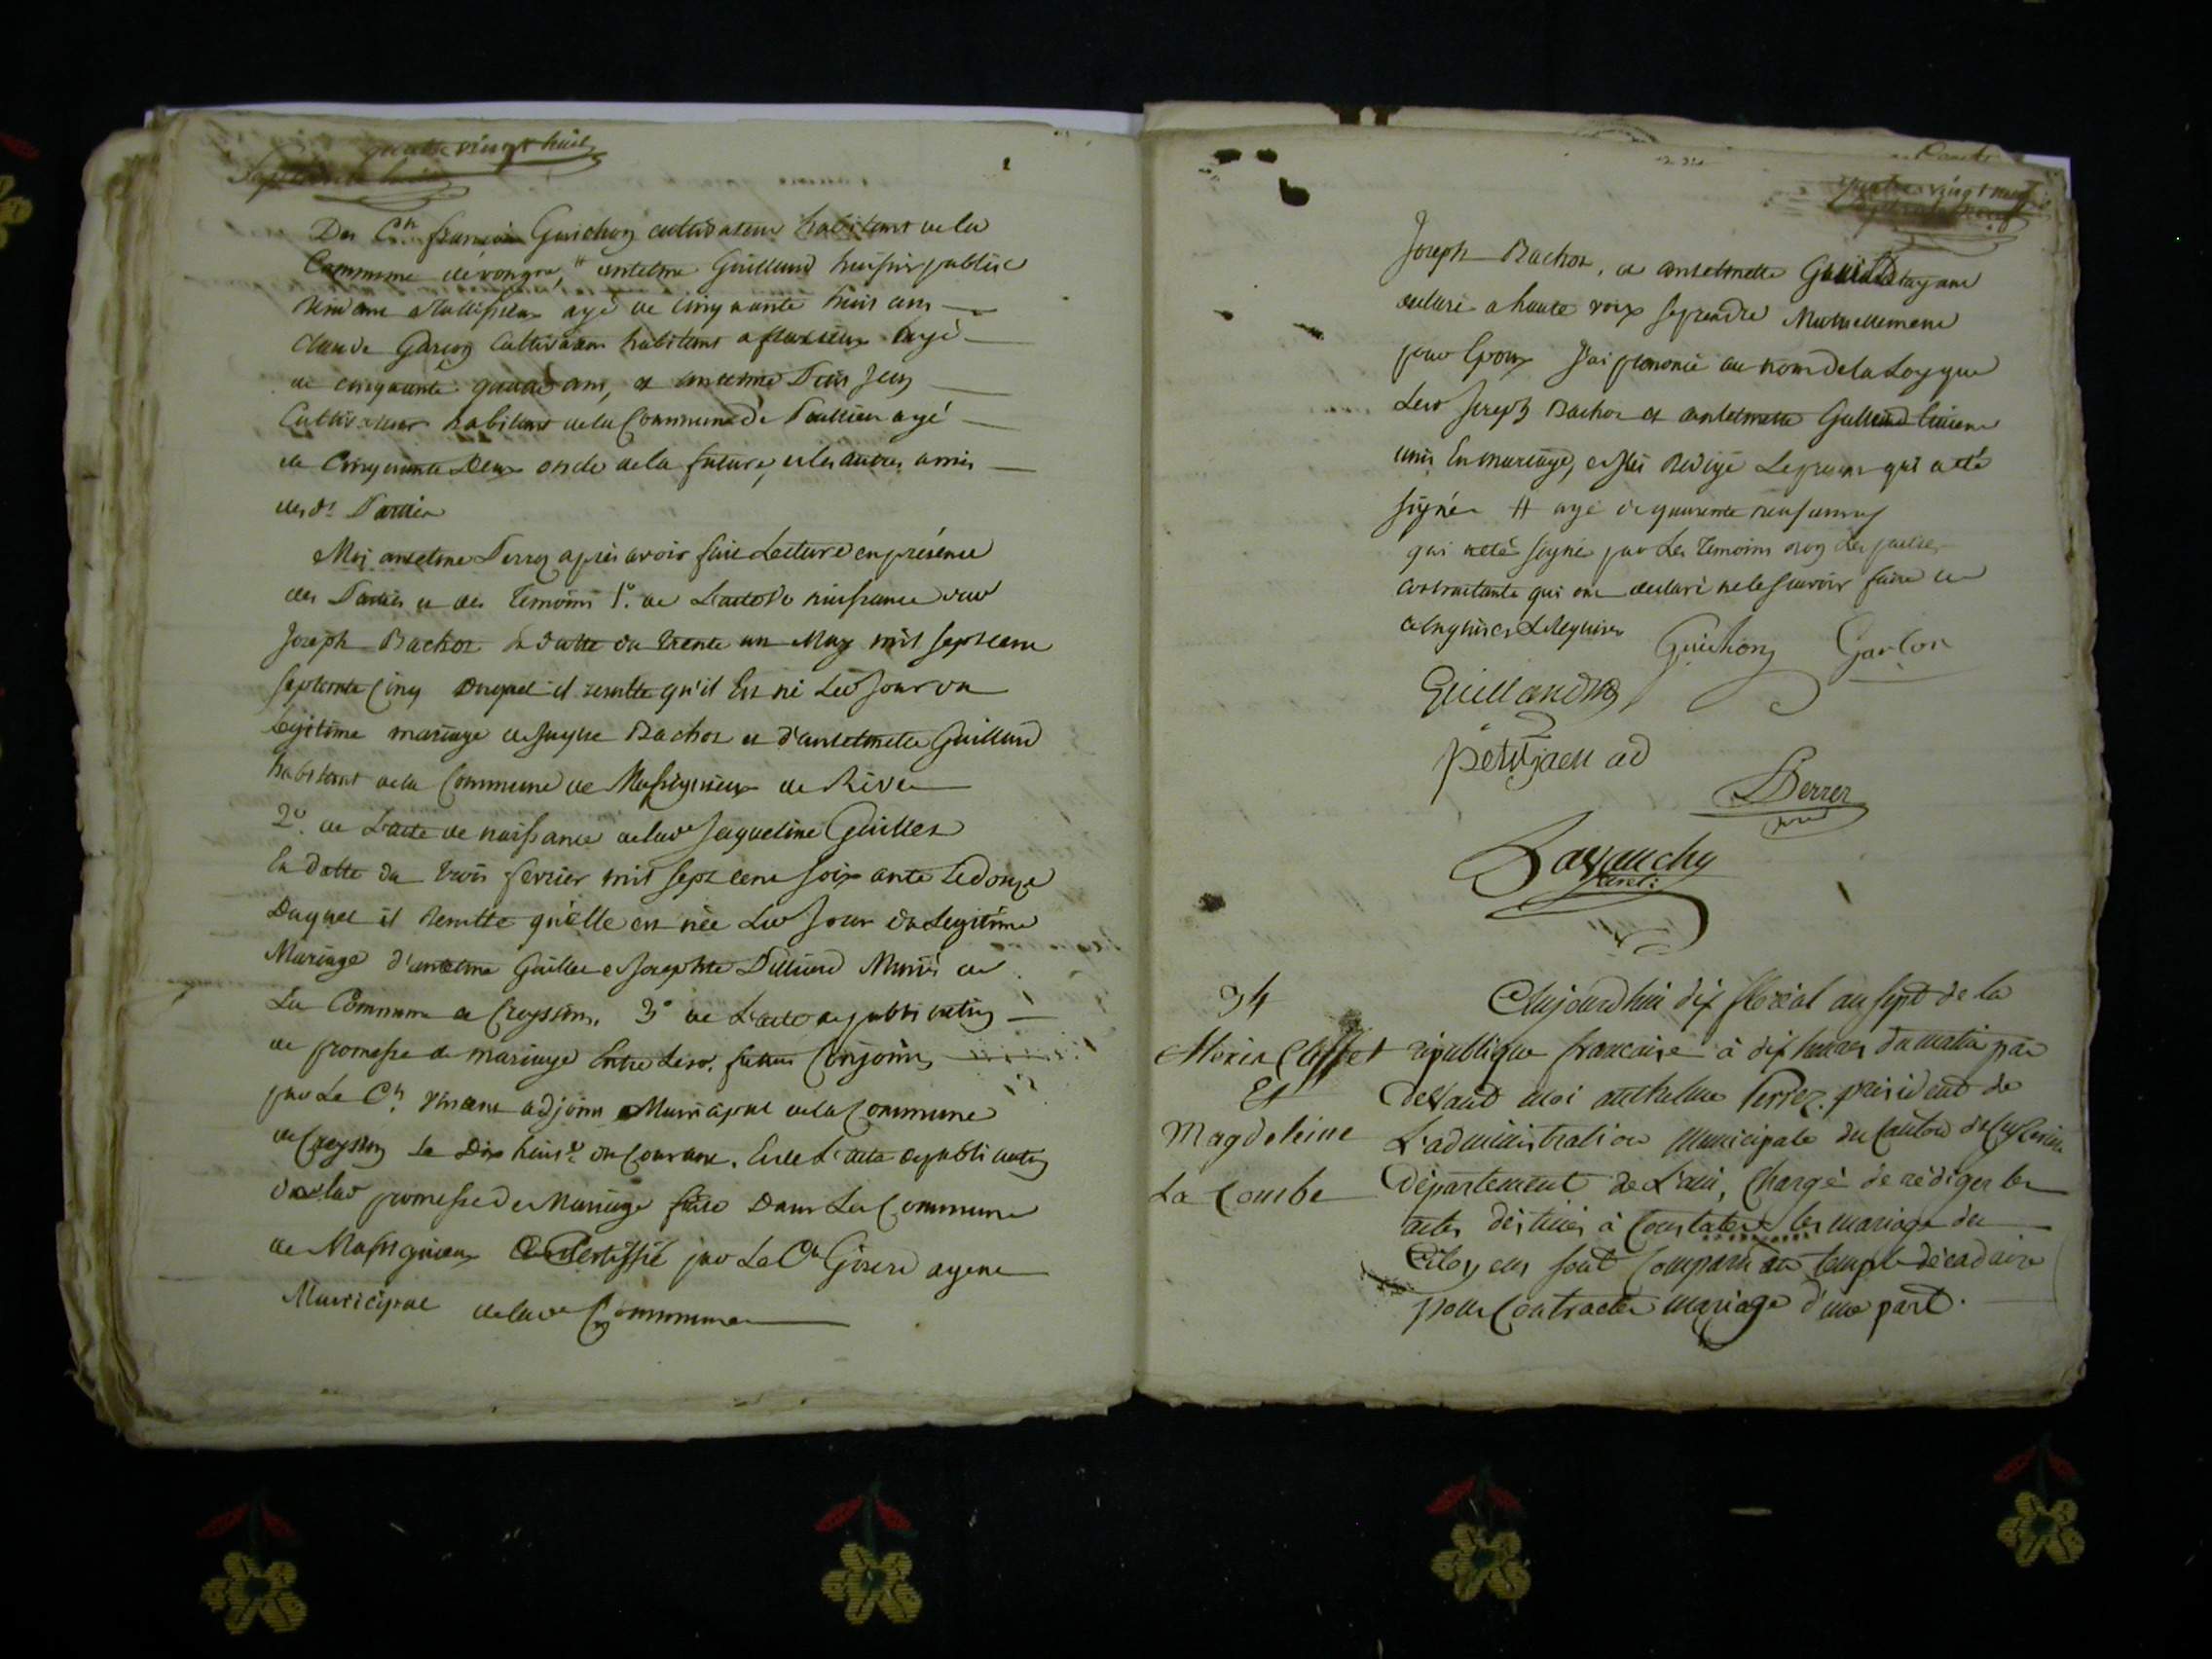 quatre vingt huit
Des Cn. francois Guichon cultivateur habitant de la
Commune de vongne, # antelme Guilland huissier public
age de cinquante huit ans
Claude Garcon Cultivateur habitant a flaxieux agé
de cinquante quatre ans, et antelme Petit Jean
Cultivateur habitant de la Commune de Pollieu agé
de Cinquante Deux oncle de la future, et les autres amis
des dt. Parties
Moi antelme Perrez après avoir faire Lecture en présence
des Parties et des temoins 1°. de L'acte de naissance dud
Joseph Bachoz en datte du trente un May mil sept cent
septente Cinq Duquel il resulte qu'il Est né Led Jour du
legitime mariage de Jaques Bachoz et d'antelmette Guilland
habitant de la Commune de Massignieux de Rive
2°. de L'acte de naissance de lad Jaqueline Guillet
En datte du trois fevrier mil sept cent soixante Et douze
Duquel il Resulte qu'elle est née Led Jour du Legitime
Mariage d'antelme Guillet et Josephte Mariés de
La Commune de Ceyssin. 3° de L'acte de publication
de promesse de mariage Entre Lesd. futurs Conjoints
par Le Cn. vincent adjoint Municipal de la Commune
de Ceyssin Le Dix huit du Courant. Et de L'acte de publication
de lad promesse de Mariage faite Dans La Commune
de Massignieux Certiffié par Le Cn Girerd agent
Municipal de lad Commune
quatre vingt neuf
Joseph Bachoz, et antelmette ayant
declaré a haute voix se prendre Mutuellement
pour Epoux J'ai prononcé au nom de la Loy que
Lesd Joseph Bachoz et antelmette étoient
unis En mariage, et J'ai Redigé Le present qui a été
signé # agé de quarente neuf ans
qui a été signé par Les temoins non Les parties
contractante qui ont declaré ne le scavoir faire de
ce Enquises et Requises
Guichon Garcon
Guilland
petitjean ad
Perrez
Lavauchy
94
Clerc
Et
Magdeleine
La Combe
Aujourdhui dix floréal an sept de la
république francaise à dix heures du matin par
devant moi anthelme Perrez président de
L'administration municipale du Canton de Ceyzerieu
Département de L'ain, Chargé de rédiger les
actes destinés à Constater les mariage des
Citoyens sont Comparu au temple décadaire
pour Contracter mariage d'une part.